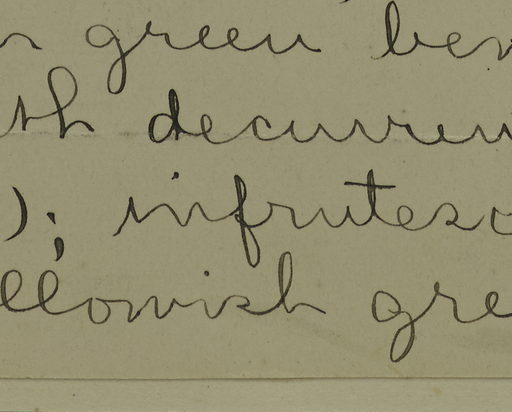 green
th decurren
); infrutesc
ellowish gre